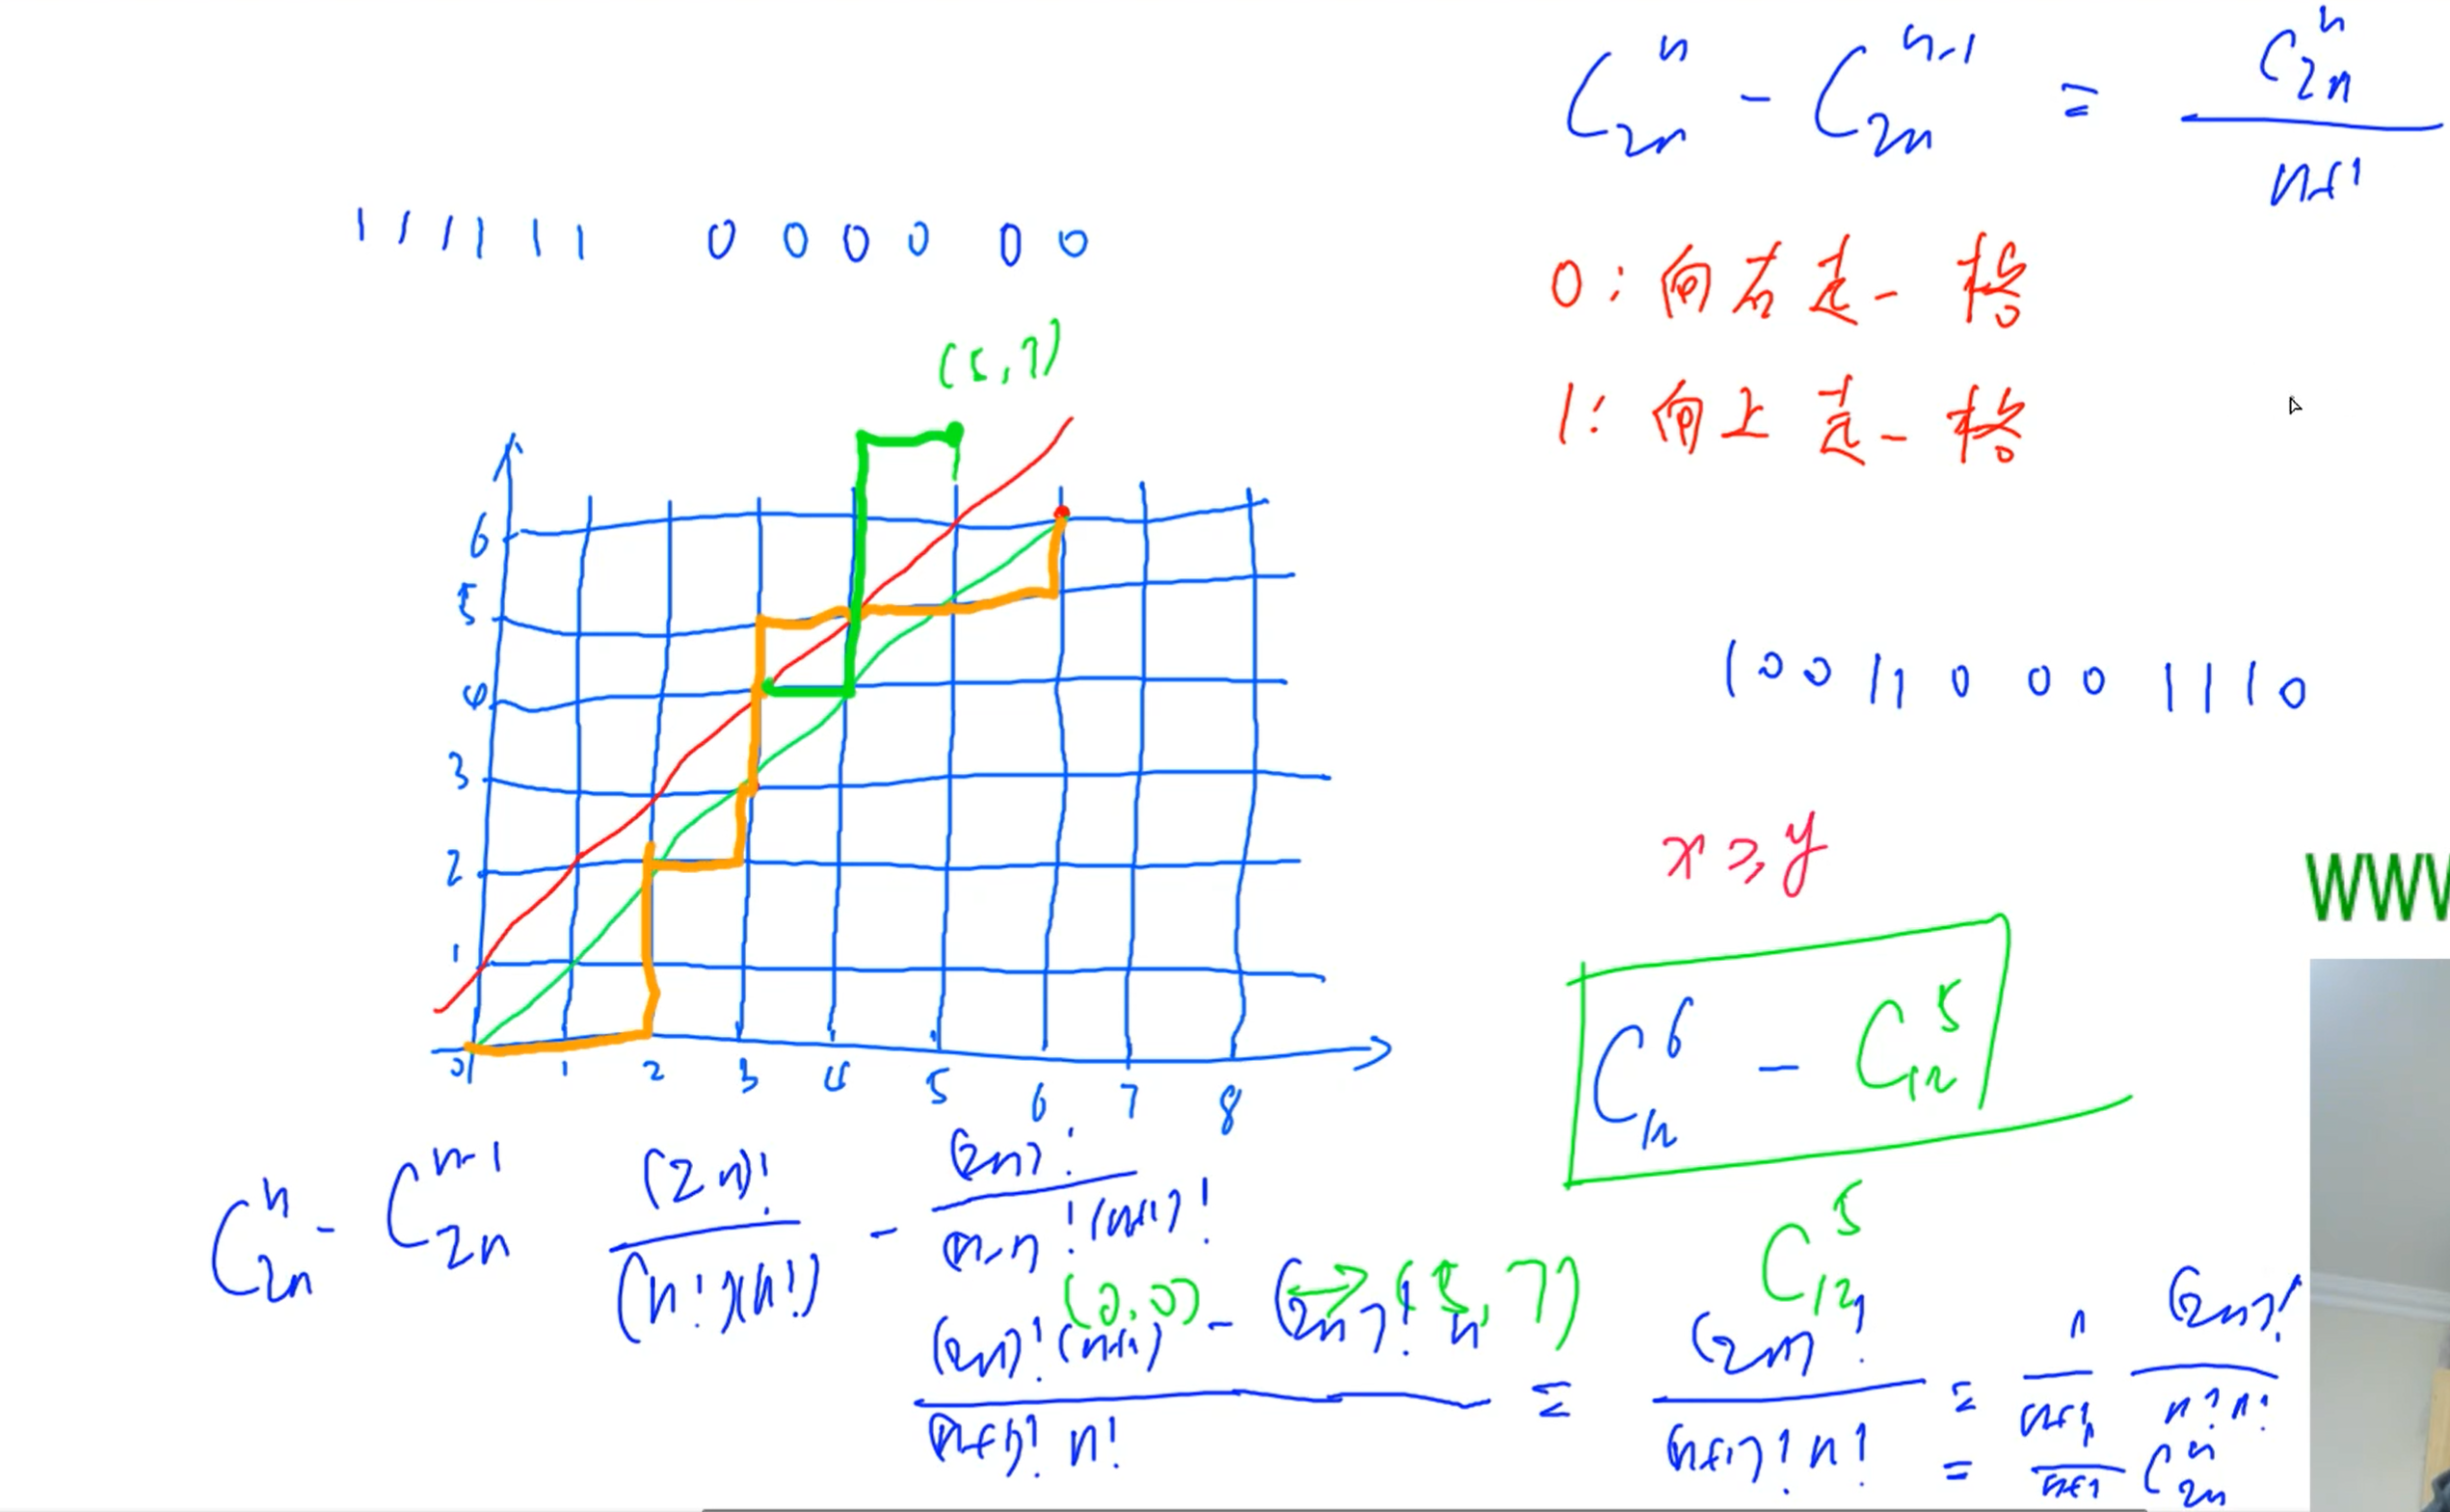 C_{2n}^{n} - C_{2n}^{n-1} = \frac{C_{2n}^{n}}{n+1}
1 1 1 1 1 1 0 0 0 0 0 0
0: 向右走一格
(5,7)
1: 向上走一格
6
5
4
3
2
1
0 1 2 3 4 5 6 7 8
1 0 0 1 1 0 0 0 1 1 1 0
x ≥ y
WWW
C_{12}^{6} - C_{12}^{5}
C_{2n}^{n} - C_{2n}^{n-1} \frac{(2n)!}{(n!)(n!)} - \frac{(2n)!}{(n-1)!(n+1)!}
C_{12}^{5}
(0,0) → (5,7)
\frac{(2n)!(n+1) - (2n)! n}{(n+1)! n!} = \frac{(2n)!}{(n+1)! n!} = \frac{1}{n+1} \frac{(2n)!}{n! n!}
= \frac{1}{n+1} C_{2n}^{n}